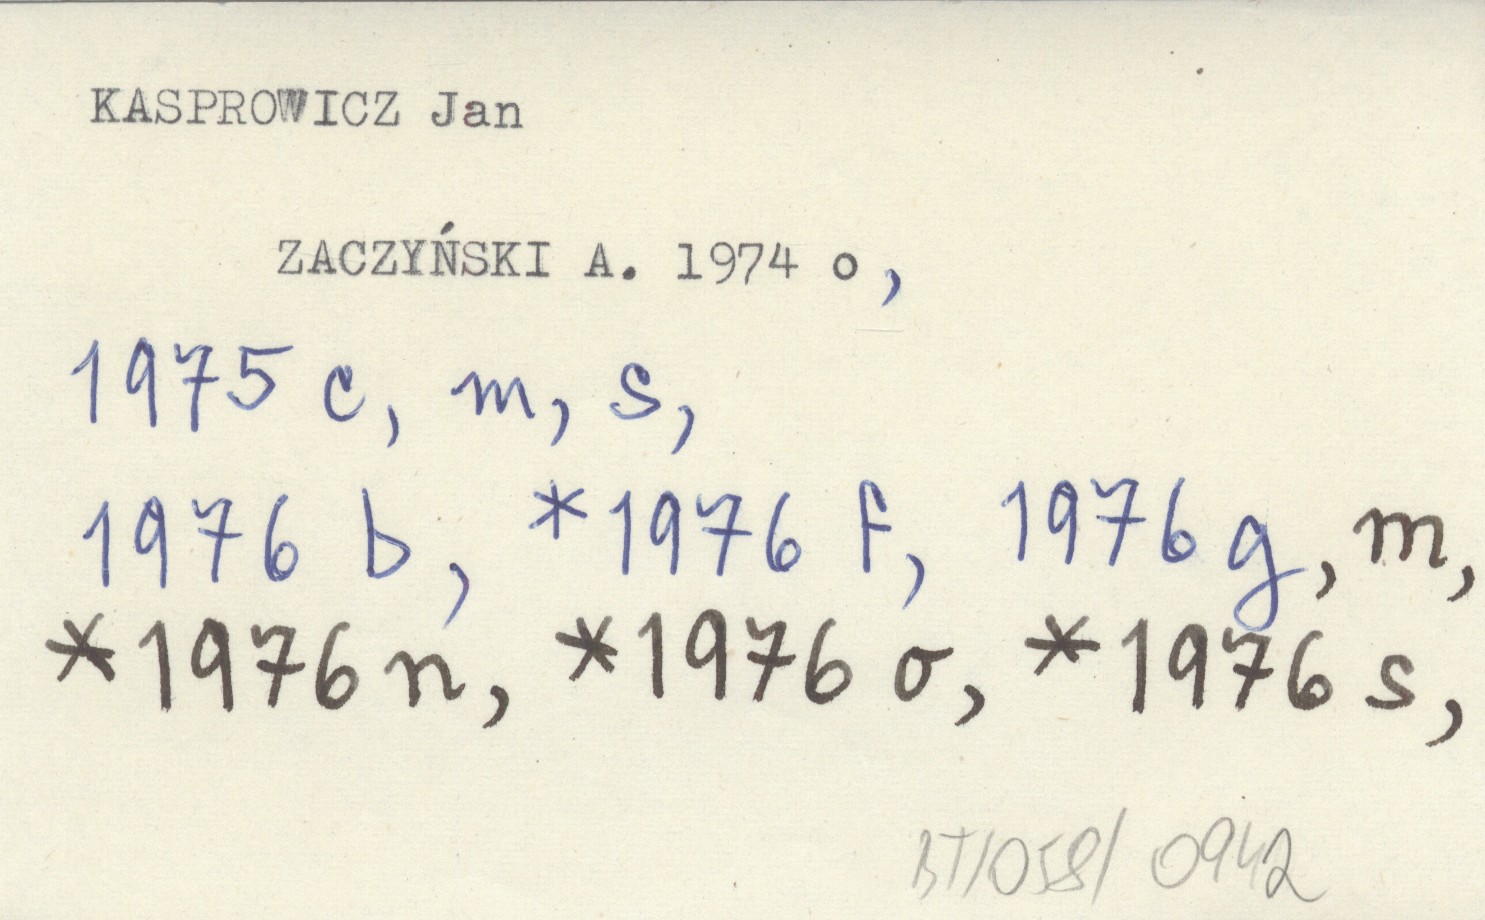 KASPROWICZ Jan
ZACZYŃSKI A. 1974 o,
1975 c, m, s,
1976 b, *1976 f, 1976 g, m,
*1976 n, *1976 o, *1976 s,
BT/058/0942